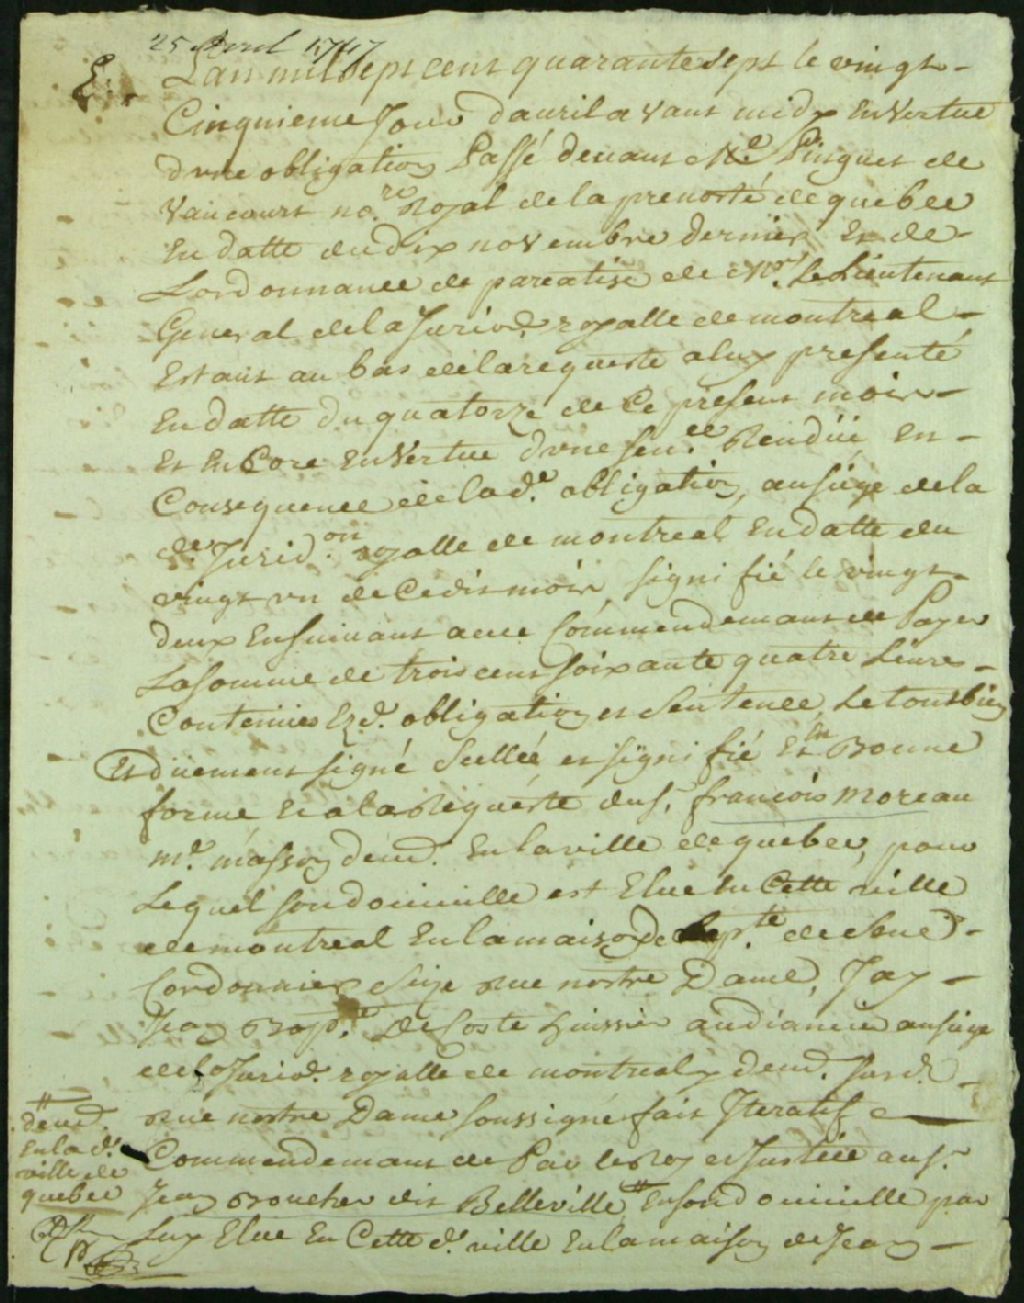 25 Avril 1747
Lan mil sept cent quarante sept le vingt
Cinquieme Jour dauril avant midy En Vertue
d'vne obligation Passé deuant Me Pinguet de
Vaucourt nore. Royal de la preuosté de quebec
En datte du dix novembre dernier Et de
Lordonnance de pareatise de Mr. le Lieutenant
General de la Jurisd. royalle de montreal
Estant au bas de la requeste a luy presenté
En datte du quatorze de Ce present mois
Et En Core En Vertue d'vne Sence. Rendüe En
Consequence de la de. obligation, au siege de la
de. Jurid.on royalle de montreal En datte du
vingt vn de Cedit mois, signifié le vingt
deux Ensuiuant auec Commendement de Payer
La somme de trois cent soixante quatre Liures
Contenües Ezd. obligation et Sentence Le tout bien
Et düement signé Scellée et signifié En Bonne
forme Et a la Requeste du Sr. françois moreau
me. masson demt. En la ville de quebec, pour
Lequel son domicille est Elue En Cette ville
de montreal En la maison de de
Cordonnier size rue nostre Dame, Jay
Jean Bapte. DeCoste huissier audiancier au siege
de la Jurid. royalle de montreal y demt. susd.
rue nostre Dame soussigné fait Iteratif
Commendement de Par le Roy et Justice au Sr.
Jean Boucher dit Belleville En son domicille par
Luy Elue En Cette de. ville En la maison de Jean
demt.
En la de.
ville de
quebec